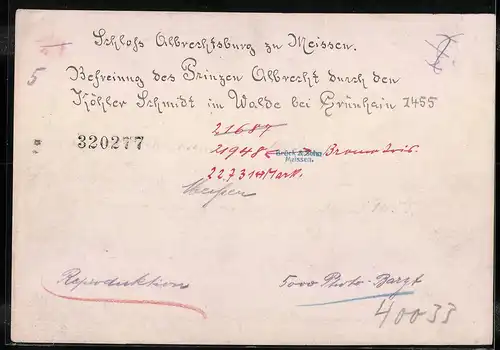 Schloß Albrechtsburg zu Meissen.
5
Befreiung des Prinzen Albrecht durch den
Köhler Schmidt im Walde bei Grünhain 1455
320277
21687
21948
Brück & Sohn
Meissen.
Meißen
Reproduktion
5000 Photo-
40033